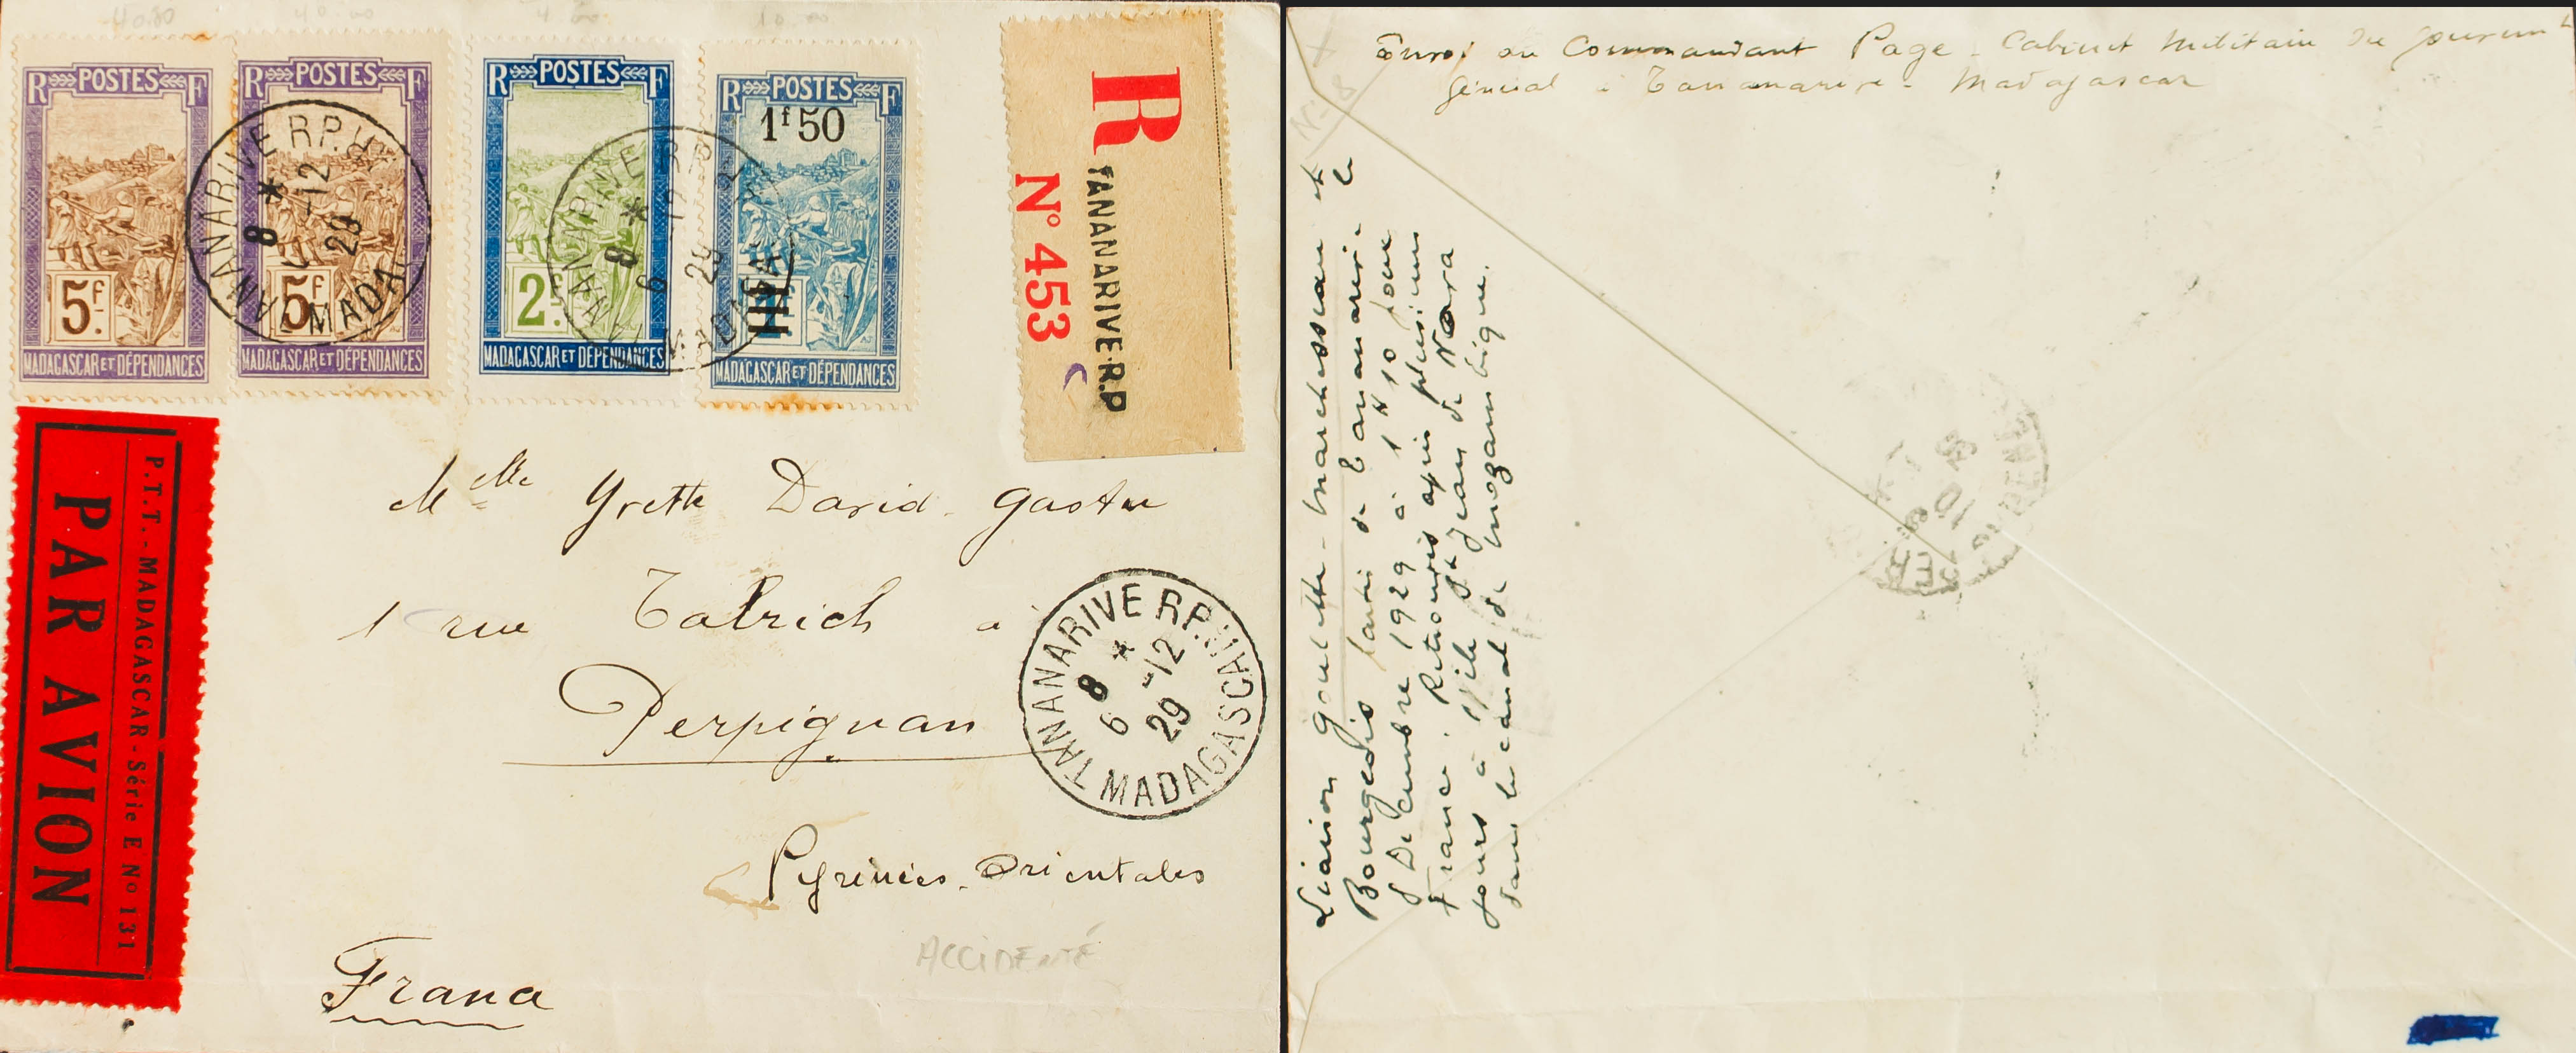 40.00 40.00 4 00 10.00
R POSTES F
5F
MADAGASCAR ET DÉPENDANCES
R POSTES F
5F
MADAGASCAR ET DÉPENDANCES
R POSTES F
2F
MADAGASCAR ET DÉPENDANCES
R POSTES F
1f50
MADAGASCAR ET DÉPENDANCES
TANANARIVE R.P. MADAGASCAR
8 * 6 -12 29
TANANARIVE R.P. MADAGASCAR
8 * 6 -12 29
R
TANANARIVE-R.P
N° 453
P.T.T. - MADAGASCAR - Série E No 131
PAR AVION
Melle Yvette David-Gastu
1 rue Talrich à
Perpignan
Pyrénées-Orientales
France
ACCIDENTÉ
TANANARIVE R.P. MADAGASCAR
8 * 6 -12 29
Envoi du Commandant Page - Cabinet Militaire du Gouvernt
Général à Tananarive - Madagascar
Liaison Goulette-Marchesseau et
Bourgeois partis de Tananarive le
Décembre 1929 à 1H10 pour
France. Retrouvés après plusieurs
jours à l'île St Jean de Nova
dans le canal de Mozambique.